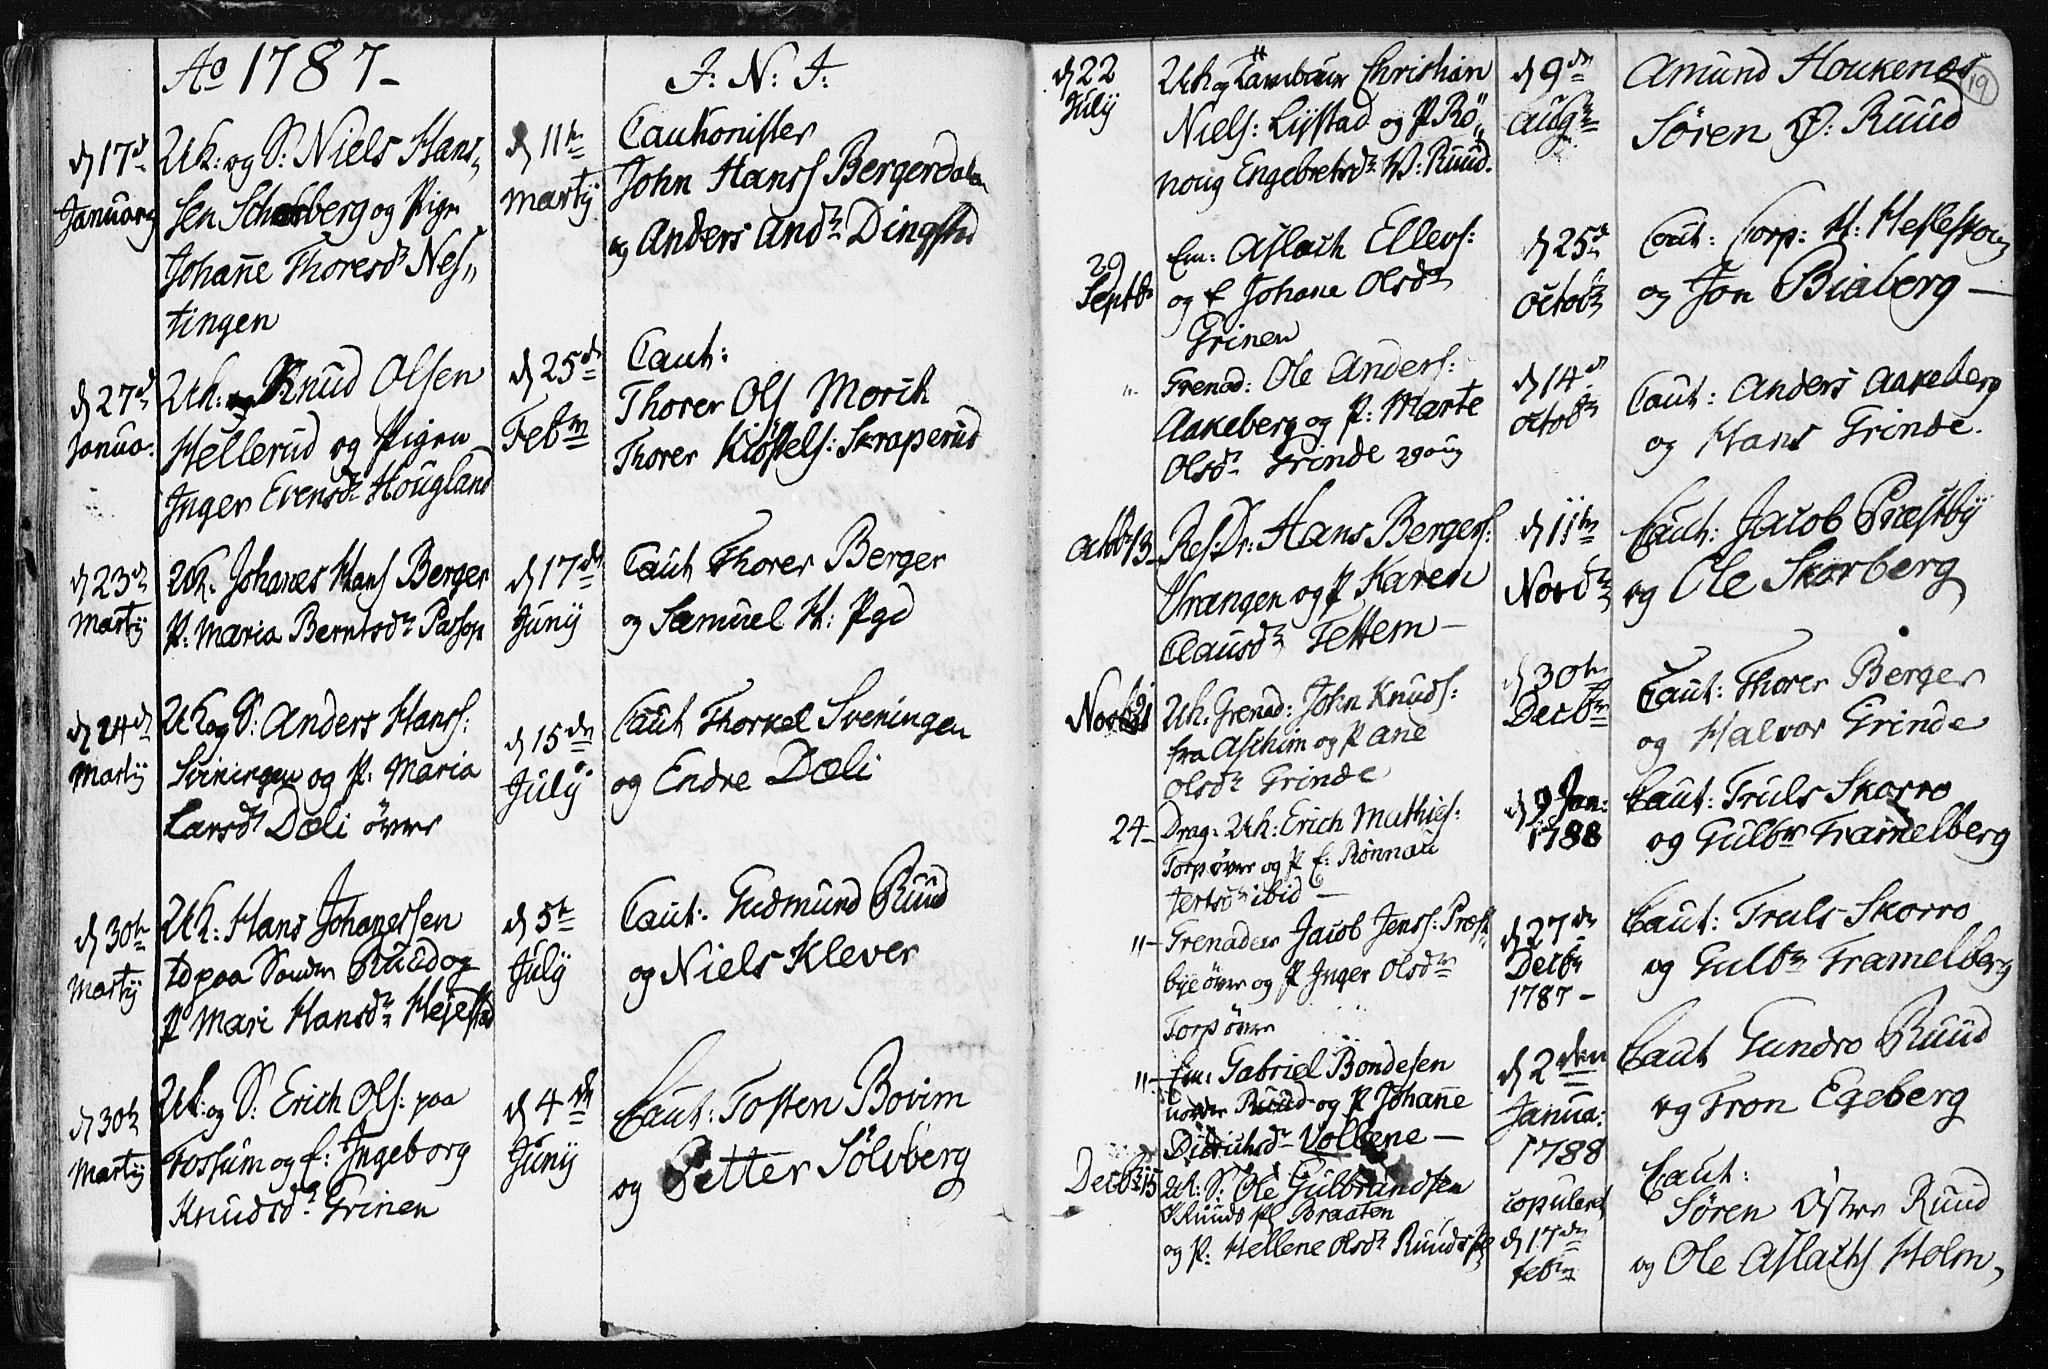 Ao 1787-
J: N: J:
d 17d
January
Uk: og S: Niels Hans-
sen Schorberg og Pige
Johane Thoresdr Nes-
tingen
d 11te
Martij
Cautionister
John Hanss Bergerdalen
og Anders Andr Dingstad
d 27d
Janua:
Uk: Knud Olsen
Hellerud og Pigen
Inger Evensdr Hougland
d 25de
Febr
Caut:
Thorer Ols Morik
Thorer Kiøstels: Skraperud
d 23de
Martij
Uk. Johanes Hans Berger
P: Maria Berntsdr
d 17de
Junij
Caut Thorer Berger
og Samuel H: Pgd
d 24d
Martij
Uk og S: Anders Hanss:
Sviningen og P: Maria
Larsdr Dæli övre
d 15de
Julij
Caut Thorkel Sveningen
og Endre Dæli
d 30te
Martij
Uk: Hans Johanessen
td paa Søndre Ruud og
P Mari Hansdr
d 5te
Julij
Caut: Gudmund Ruud
og Niels Klever
d 30te
Martij
Uk: og S: Erich Ols: paa
Fossum og E: Ingeborg
Knudsdr Grinen
d 4de
Junij
Caut: Tosten Bovim
og Petter Sölvberg
19
d 22
Julij
Uk og Tambour Christian
Niels: Lystad og P Rö-
noug Engebretsdr W: Ruud.
d 9de
Augr
Amund Houkenæs
Sören Ø: Ruud
29
Septbr
Em: Aslach Ellevs:
og E Johane Olsdr
Grinen
d 25de
Octobr
Caut: Corp: H: Hesleskoug
og Jon Biaberg —
"
Grenad: Ole Anders:
Aakeberg og P: Marte
Olsdr Grinde
d 14de
octobr
Caut: Anders Aakeberg
og Hans Grinde.
octbr 13
Res: Dr: Hans Bergers:
Vrangen og P Karen
Clausdr Tettem —
d 11te
Novbr
Caut: Jacob Præstby
og Ole Skorberg
Novbr
Uk. Grenad: John Knuds:
fra Aschim og P ane
Olsdr Grinde
d 30te
Decbr
Caut: Thorer Berger
og Halvor Grinde
24-
Drag: Uk: Erich Mathies:
Torp övre og P E: Rönnau
ibid —
d 9 Jan:
1788
Caut: Truls Skorro
og Gulbr Framelberg
"-
Grenadeer Jacob Jenss: Præst-
bye övre og P Inger Olsdr
Torp övre
d 27de
Decbr
1787 -
Caut: Truls Skorro
og Gulbr Framelberg
"-
Em: Gabriel Bondesen
nordre Ruud og P Johane
Didrichsdr Vollene —
d 2den
Janua:
1788
Caut Gundro Ruud
og Tron Egeberg
Decbr 15
Uk: S: Ole Gulbrandsen
Ruuds pl Braaten
og P: Hellene Olsdr Ruuds pl
copuleret
d 17de
febr
Caut:
Sören Østre Ruud
og Ole Aslachs Holm,